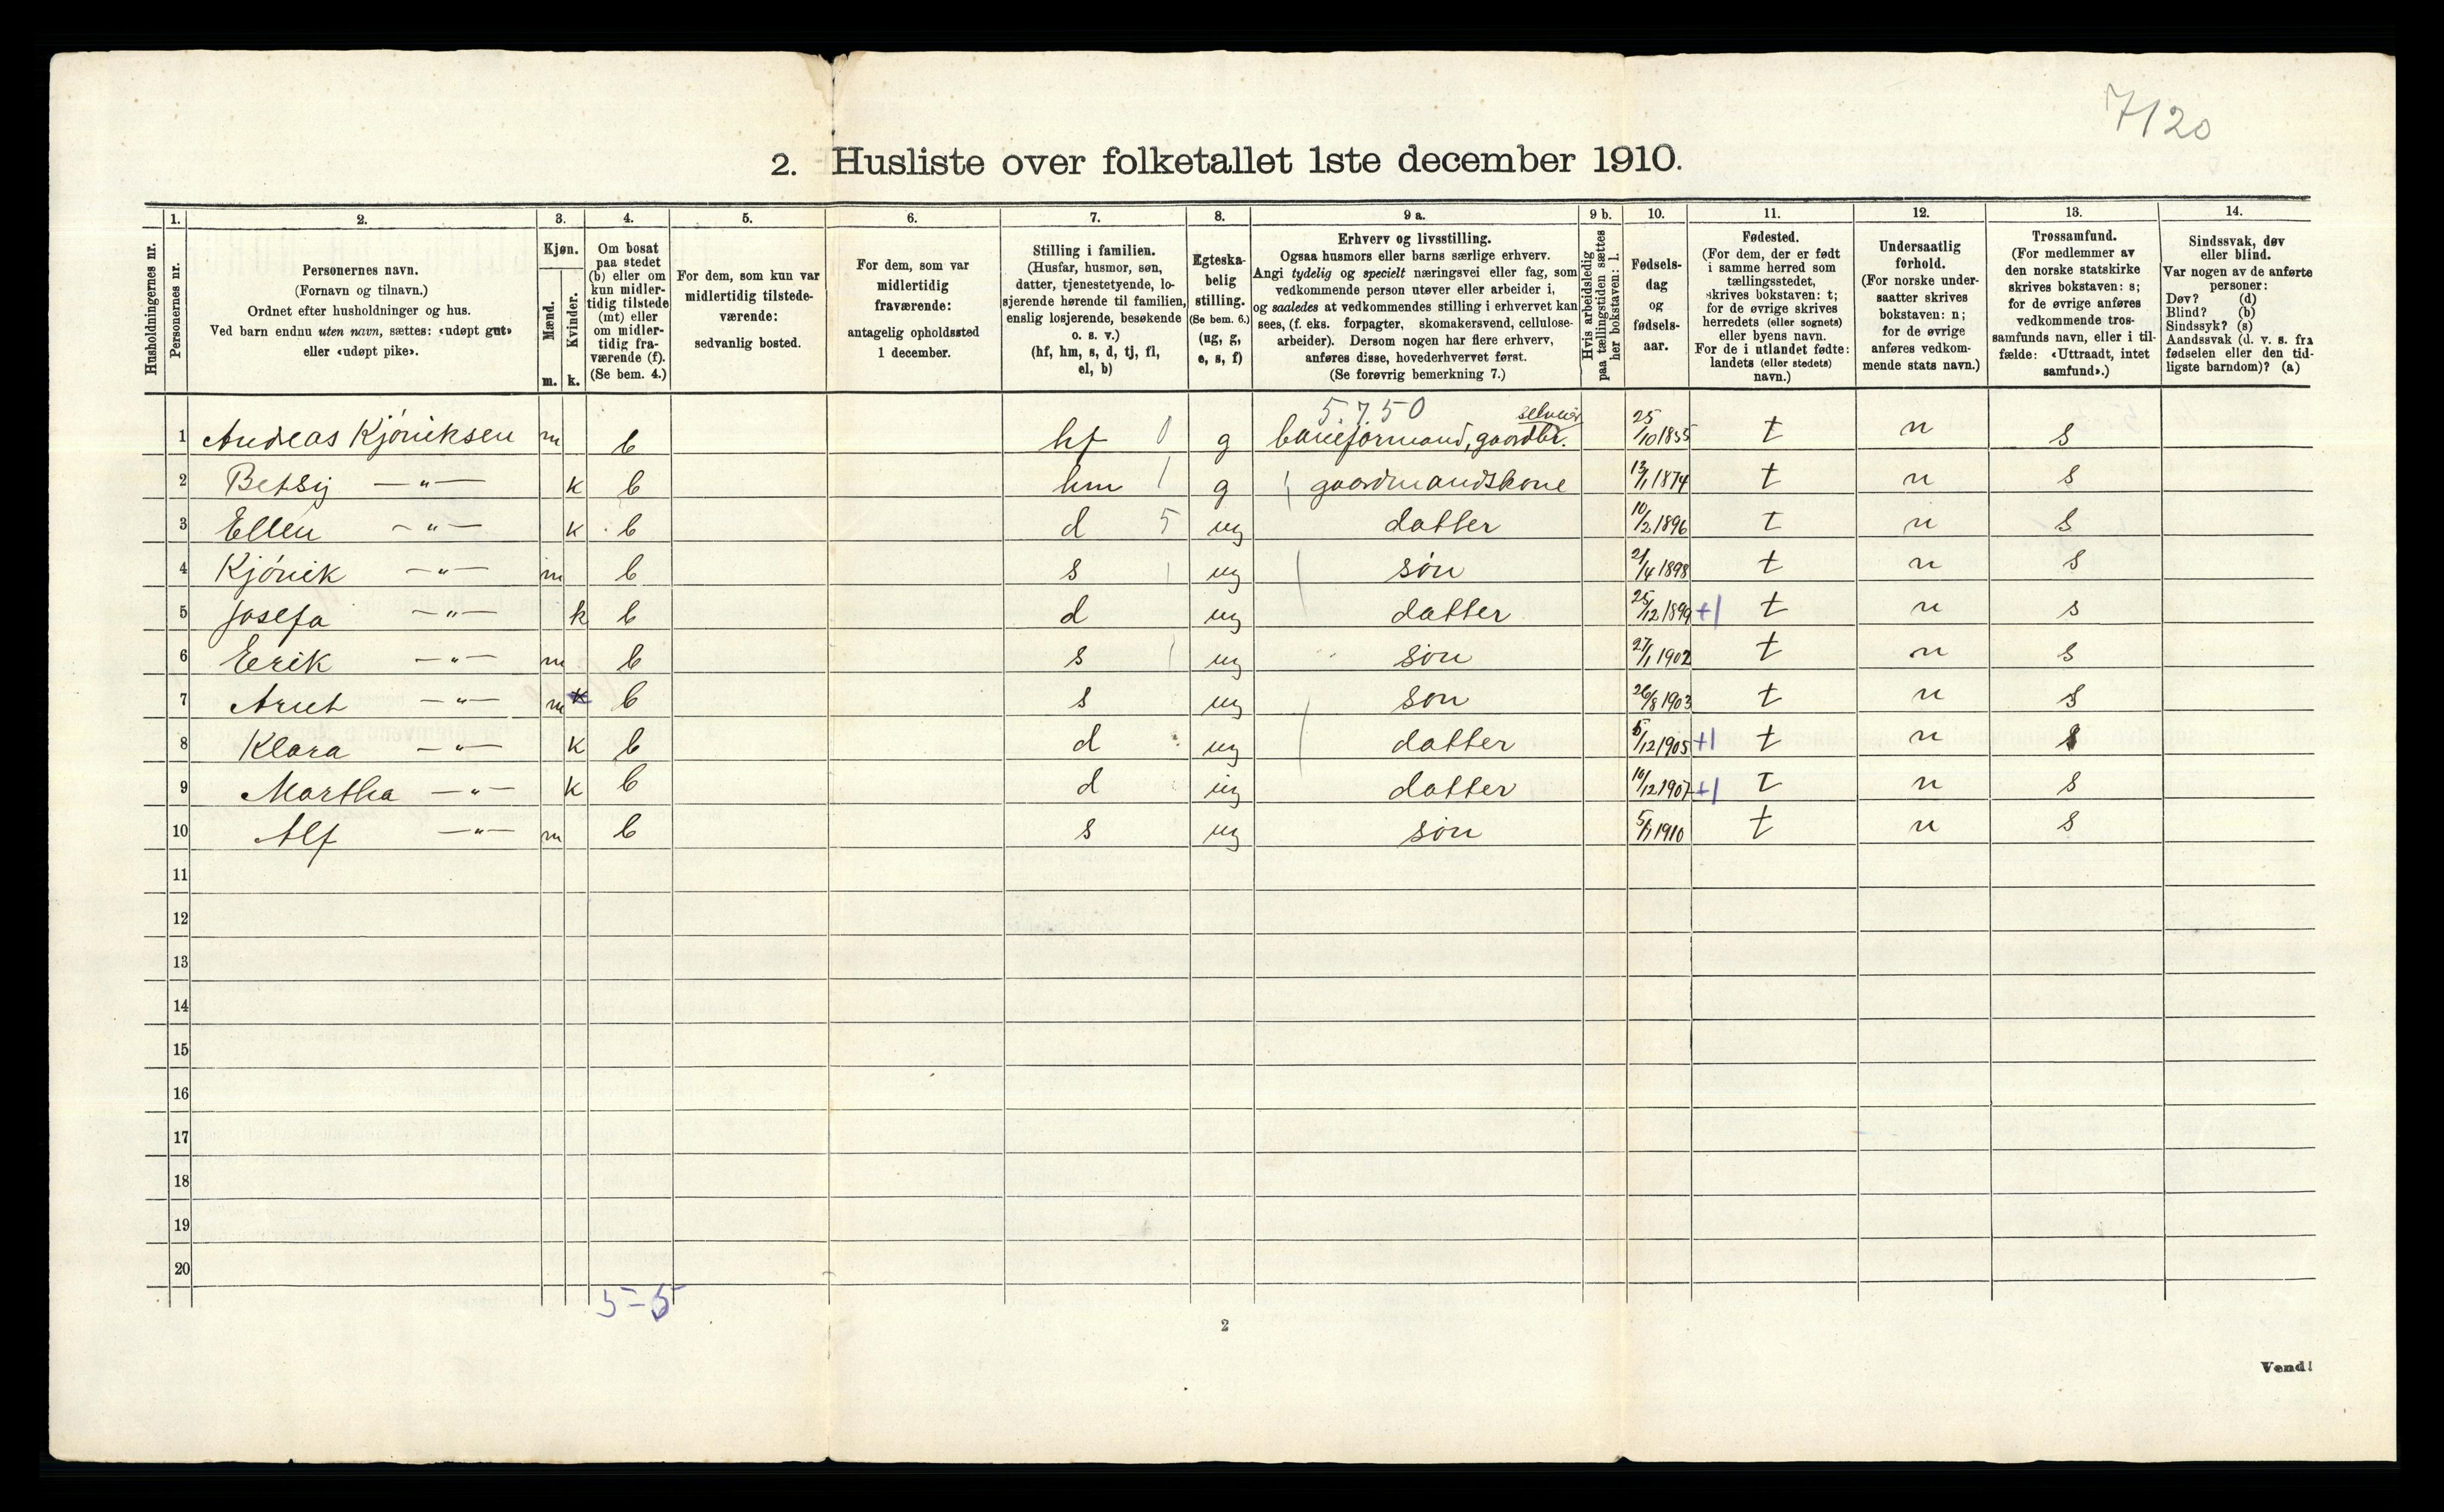 7/20
2. Husliste over folketallet 1ste december 1910.
Husholdningernes nr.
1.
Personernes nr.
2.
Personernes navn.
(Fornavn og tilnavn.)
Ordnet efter husholdninger og hus.
Ved barn endnu uten navn, sættes: «udøpt gut»
eller «udøpt pike».
3.
Kjøn.
Mænd.
Kvinder.
m. k.
4.
Om bosat
paa stedet
(b) eller om
kun midler-
tidig tilstede
(mt) eller
om midler-
tidig fra-
værende (f).
(Se bem. 4.)
5.
For dem, som kun var
midlertidig tilstede-
værende:
sedvanlig bosted.
6.
For dem, som var
midlertidig
fraværende:
antagelig opholdssted
1 december.
7.
Stilling i familien.
(Husfar, husmor, søn,
datter, tjenestetyende, lo-
sjerende hørende til familien,
enslig losjerende, besøkende
o. s. v.)
(hf, hm, s, d, tj, fl,
el, b)
8.
Egteska-
belig
stilling.
(Se bem. 6.)
(ug, g,
e, s, f)
9 a.
Erhverv og livsstilling.
Ogsaa husmors eller barns særlige erhverv.
Angi tydelig og specielt næringsvei eller fag, som
vedkommende person utøver eller arbeider i,
og saaledes at vedkommendes stilling i erhvervet kan
sees, (f. eks. forpagter, skomakersvend, cellulose-
arbeider). Dersom nogen har flere erhverv,
anføres disse, hovederhvervet først.
(Se forøvrig bemerkning 7.)
9 b.
Hvis arbeidsledig
paa tællingstiden sættes
her bokstaven: l.
10.
Fødsels-
dag
og
fødsels-
aar.
11.
Fødested.
(For dem, der er født
i samme herred som
tællingsstedet,
skrives bokstaven: t;
for de øvrige skrives
herredets (eller sognets)
eller byens navn.
For de i utlandet fødte:
landets (eller stedets)
navn.)
12.
Undersaatlig
forhold.
(For norske under-
saatter skrives
bokstaven: n;
for de øvrige
anføres vedkom-
mende stats navn.)
13.
Trossamfund.
(For medlemmer av
den norske statskirke
skrives bokstaven: s;
for de øvrige anføres
vedkommende tros-
samfunds navn, eller i til-
fælde: «Uttraadt, intet
samfund».)
14.
Sindssvak, døv
eller blind.
Var nogen av de anførte
personer:
Døv? (d)
Blind? (b)
Sindssyk? (s)
Aandssvak (d. v. s. fra
fødselen eller den tid-
ligste barndom)? (a)
5.750 selveier
1 Andreas Kjöniksen m b hf 0 g baneformand, gaardbr. 25/10 1855 t n s
2 Betsy —"— k b hm 1 g gaardmandskone 13/1 1874 t n s
3 Ellen —"— k b d 5 ug datter 10/2 1896 t n s
4 Kjönik —"— m b s 1 ug sön 21/4 1898 t n s
5 Josefa —"— k b d ug datter 25/12 1899 +1 t n s
6 Eerik —"— m b s 1 ug sön 27/1 1902 t n s
7 Arnt —"— m k b s ug sön 26/8 1903 t n s
8 Klara —"— k b d ug datter 5/12 1905 +1 t n s
9 Martha —"— k b d ug datter 10/12 1907 +1 t n s
10 Alf —"— m b s ug sön 5/1 1910 t n s
11
12
13
14
15
16
17
18
19
20
5-5
2
Vend!